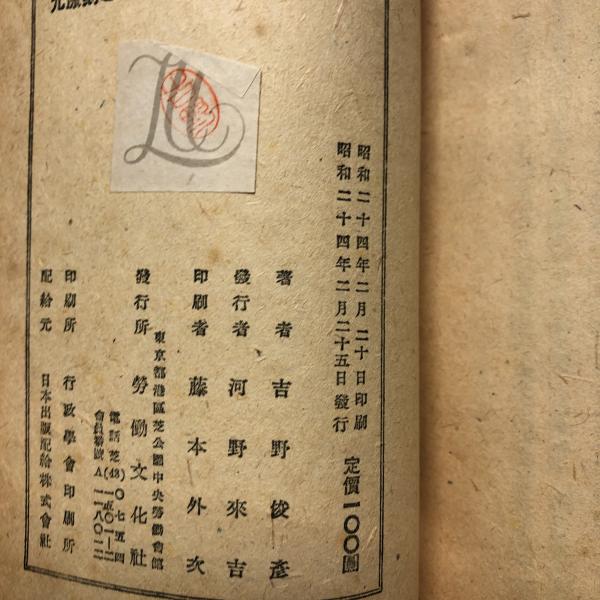 昭和二十四年二月二十日印刷
昭和二十四年二月二十五日發行
定價一〇〇圓
著者 吉野俊彥
發行者 河野來吉
印刷者 藤本外次
東京都港區芝公園中央勞働會館
發行所 勞働文化社
電話芝(43)〇七五四
會員番號A
印刷所 行政學會印刷所
配給元 日本出版配給株式會社